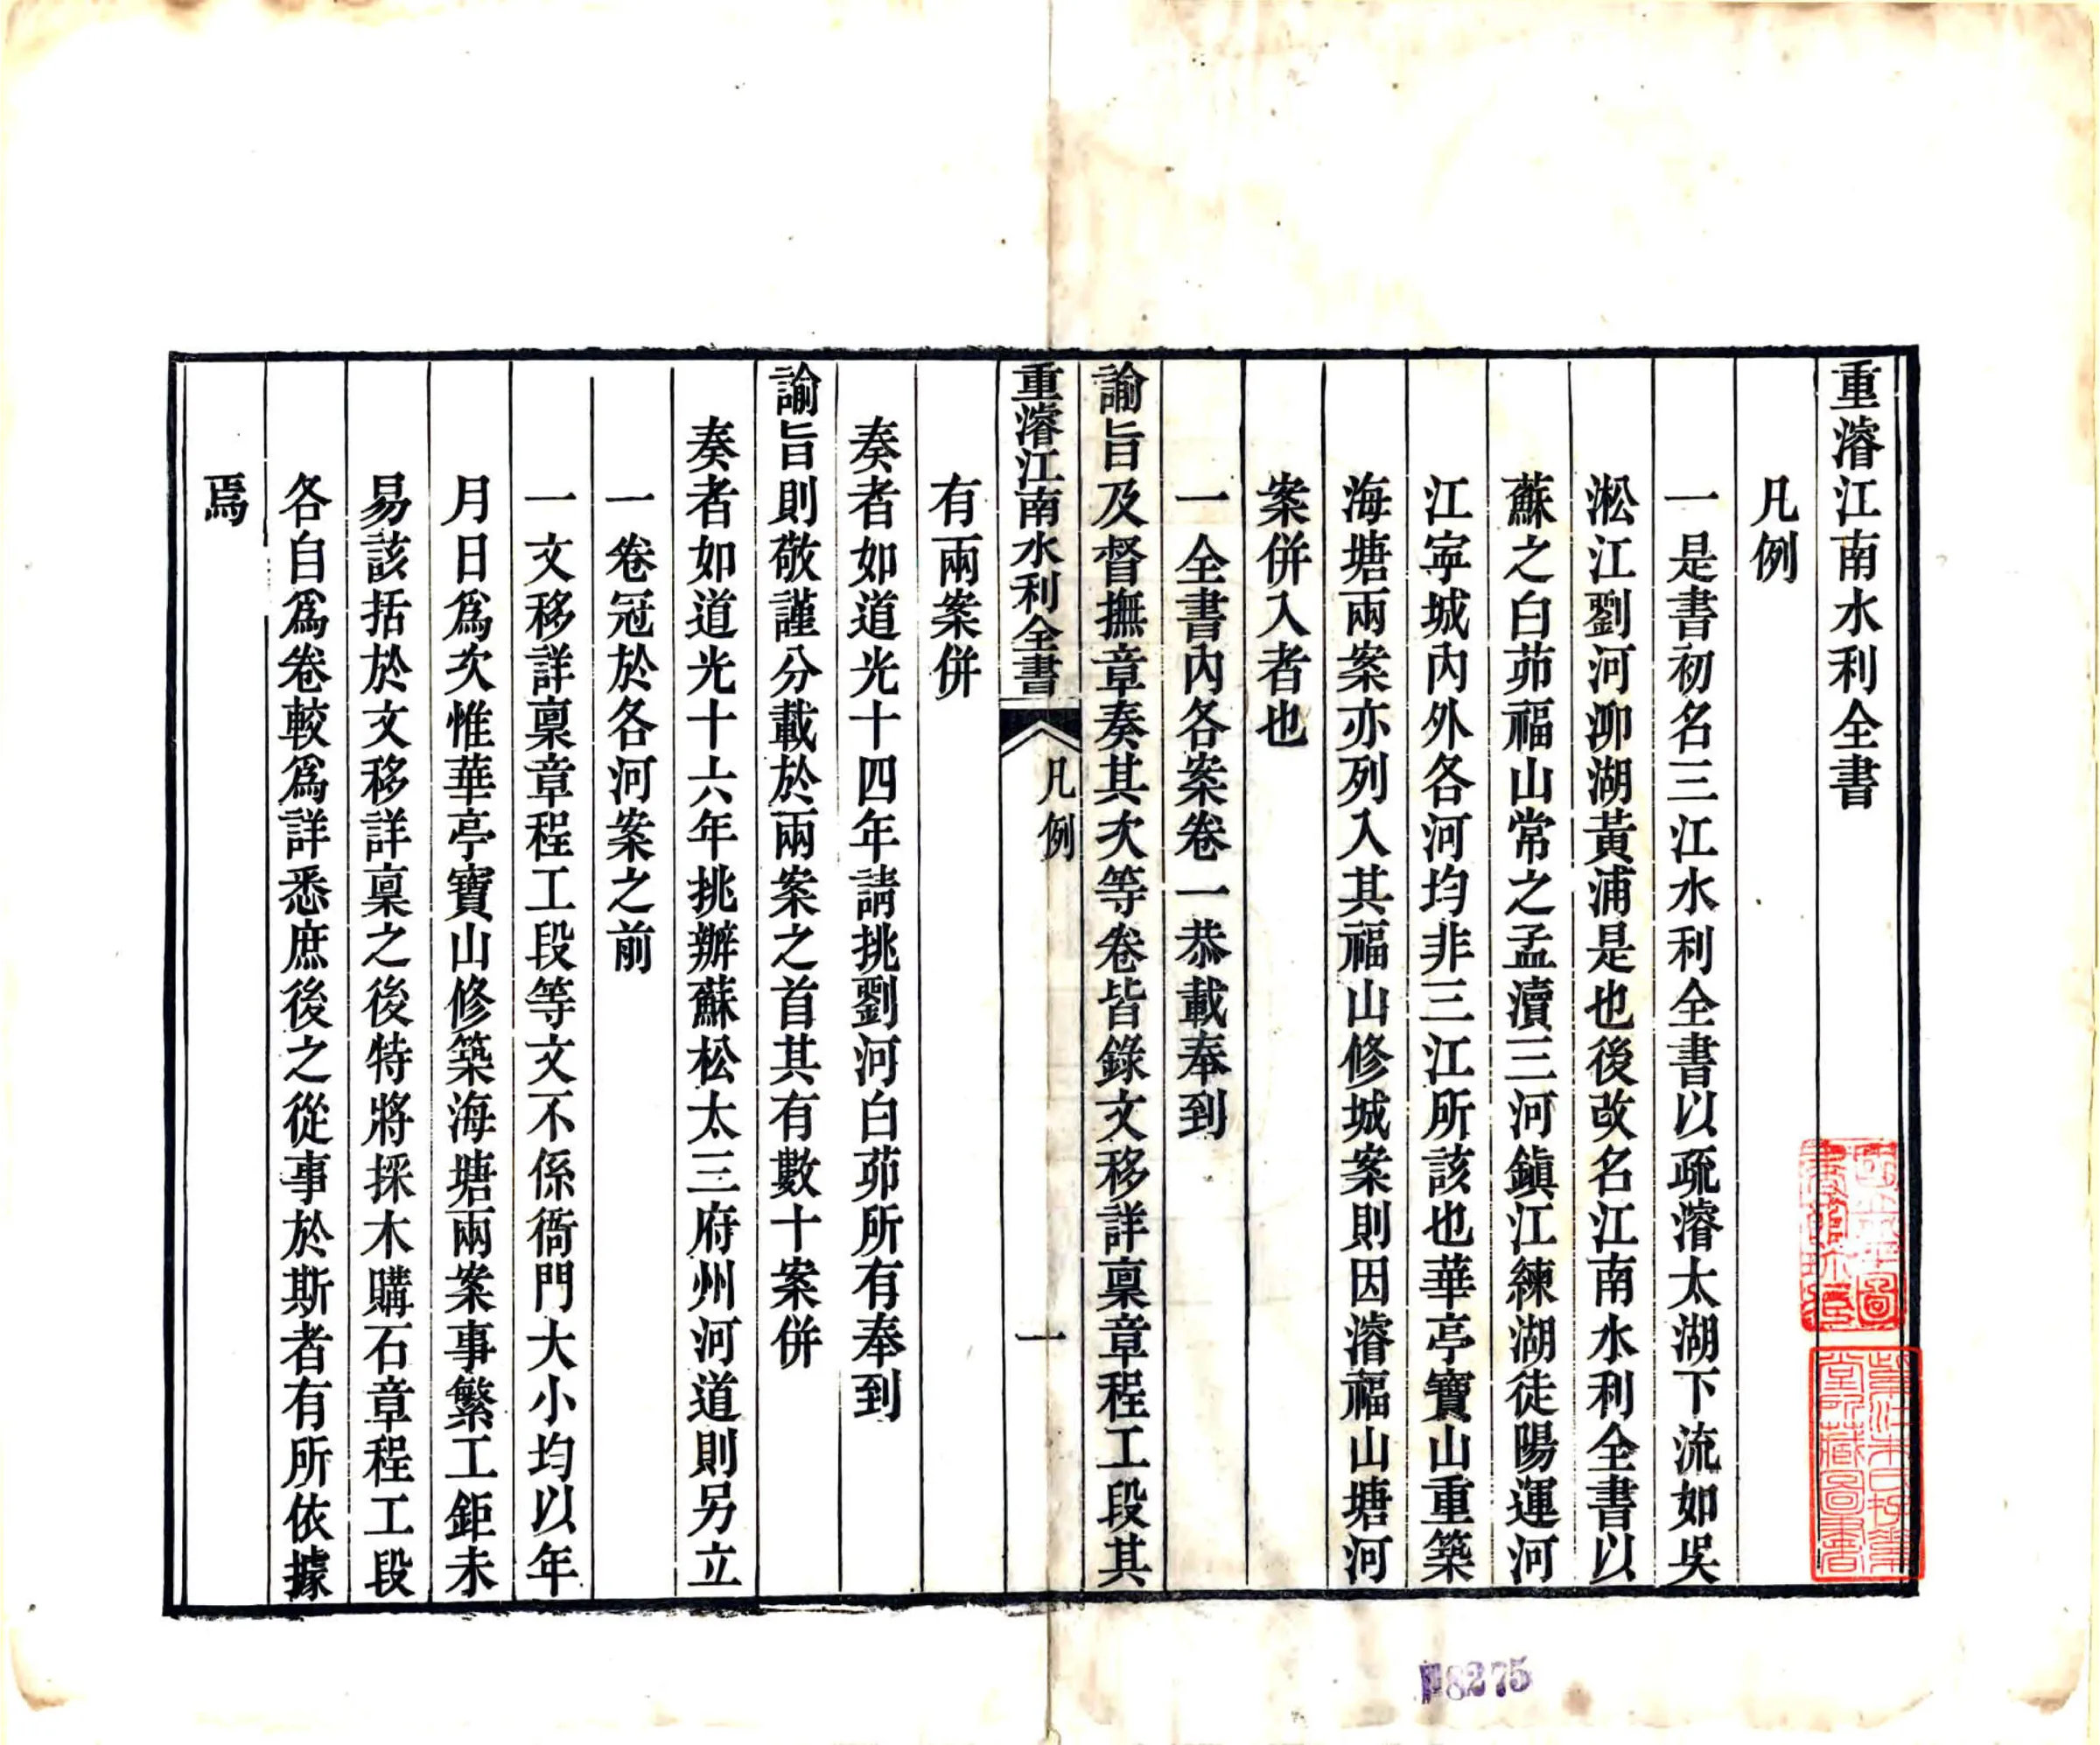 重濬江南水利全書
凡例
一是書初名三江水利全書以疏濬太湖下流如吳
淞江劉河泖湖黃浦是也後改名江南水利全書以
蘇之白茆福山常之孟瀆三河鎮江練湖徒陽運河
江寜城內外各河均非三江所該也華亭寶山重築
海塘兩案亦列入其福山修城案則因濬福山塘河
案併入者也
一全書內各案卷一恭載奉到
諭旨及督撫章奏其次等卷皆錄文移詳稟章程工段其
重濬江南水利全書 凡例 一
有兩案併
奏者如道光十四年請挑劉河白茆所有奉到
諭旨則敬謹分載於兩案之首其有數十案併
奏者如道光十六年挑辦蘇松太三府州河道則另立
一卷冠於各河案之前
一文移詳稟章程工段等文不係衙門大小均以年
月日爲次惟華亭寶山修築海塘兩案事繁工鉅未
易該括於文移詳稟之後特將採木購石章程工段
各自爲卷較爲詳悉庶後之從事於斯者有所依據
焉
8275